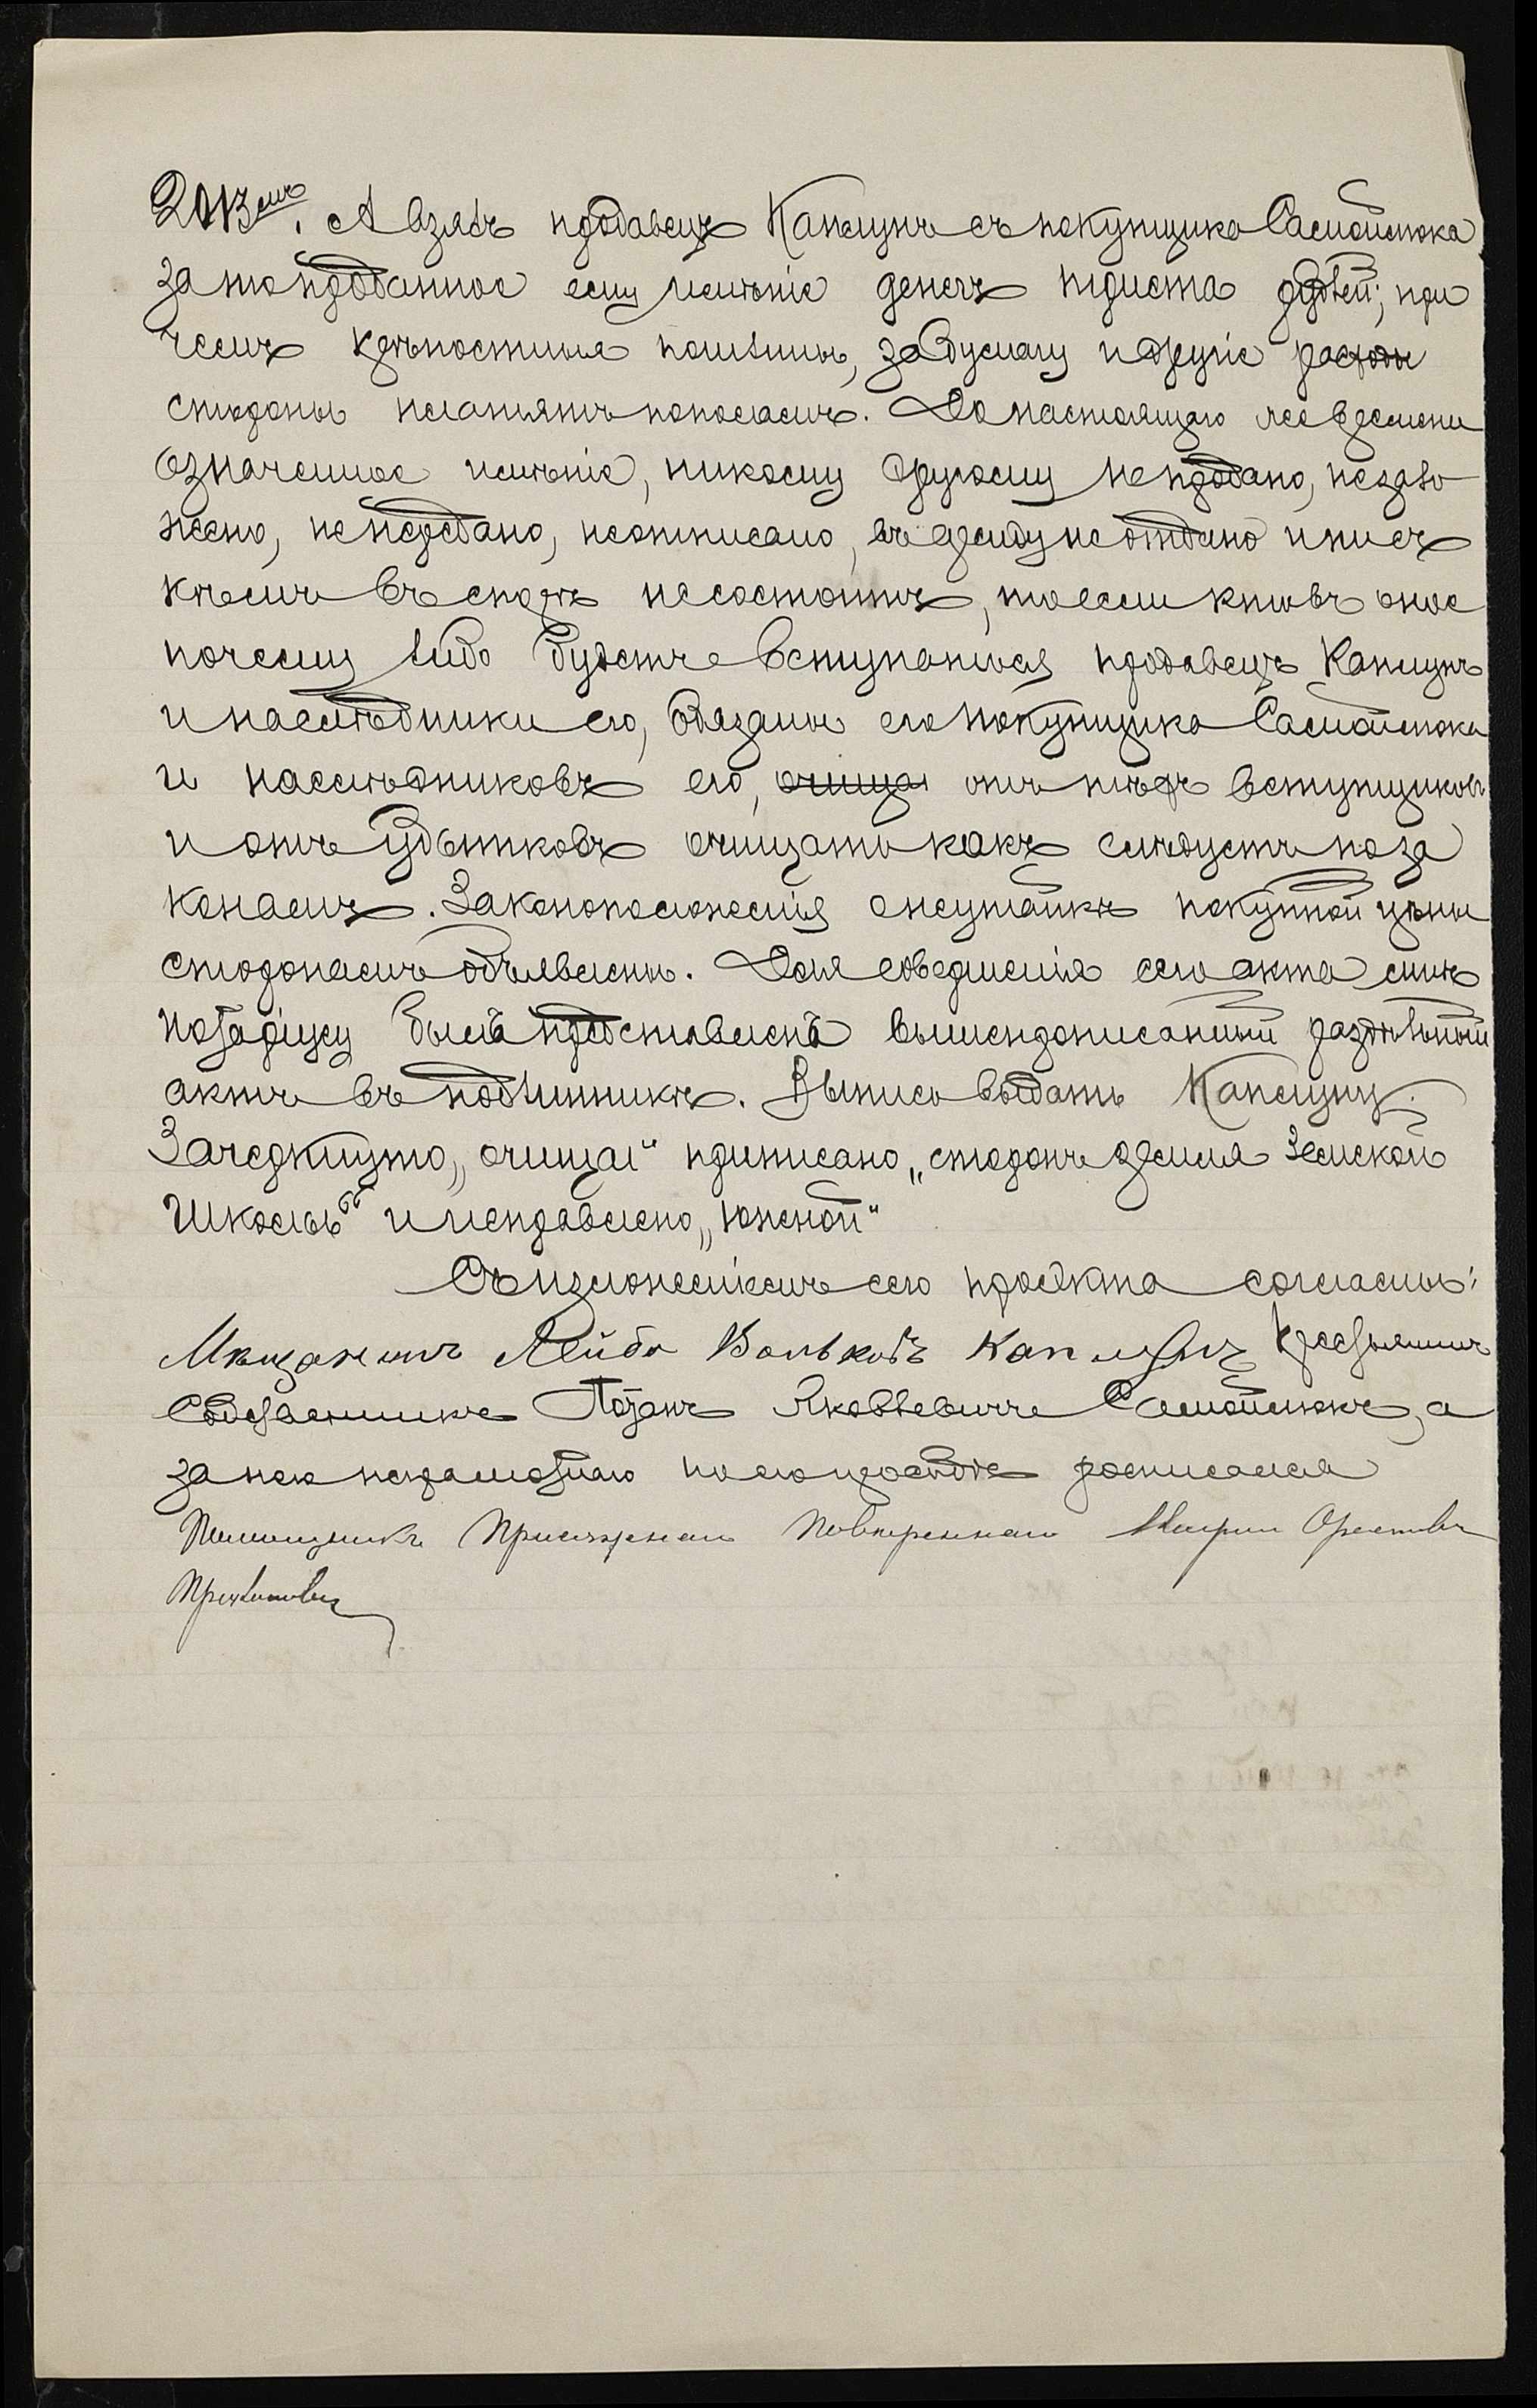 А взялъ продавецъ Каплунъ съ покупщика Самойлюка
за то проданное ему имѣніе денегъ триста рублей; при
чемъ крѣпостныя пошлины, за бумагу и другіе расходы
стороны платятъ пополамъ. До настоящаго же времени
означенное имѣніе, никому другому не продано, не зало
жено, не передано, не отписано, въ аренду не отдано и ни съ
кѣмъ въ спорѣ не состоитъ, то если кто въ оное
почему либо будетъ вступаться продавецъ Каплунъ
и наслѣдники его, обязаны его покупщика Самойлюка
и наслѣдниковъ его, очищая отъ тѣхъ вступщиковъ
и отъ убытковъ очищать какъ слѣдуетъ по за
конамъ. Законоположенія о неутайкѣ покупной цѣны
сторонамъ объявлены. Для совершенія сего акта мнѣ
нотаріусу былъ представленъ вышепрописанный раздѣльный
актъ въ подлинникѣ. Выпись выдать Каплуну.
Зачеркнуто „очищая“ приписано „сторонъ земля Земской
Школы“ и исправлено „южной“
Съ изложеніемъ сего проэкта согласны:
Мѣщанинъ Лейба Вольковъ Каплунъ Крестьянинъ
Собственникъ Иванъ Яковлевичъ Самойлюкъ, а
за него неграмотнаго по его просьбѣ росписался
Помощникъ Присяжнаго Повѣреннаго Орестовъ